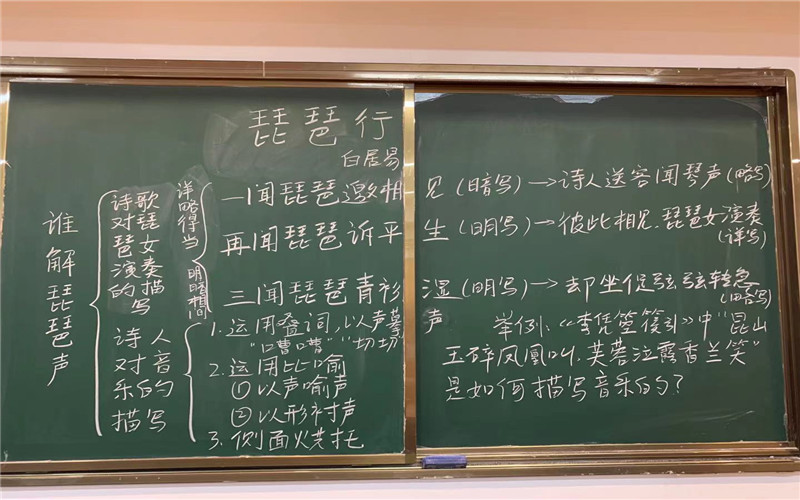 琵琶行
白居易
谁解琵琶声
诗歌
对琵
琶女
演奏
的描
写
详略得当
明暗相间
一闻琵琶邀相见(暗写)→诗人送客闻琴声(略写)
再闻琵琶诉平生(明写)→彼此相见,琵琶女演奏
(详写)
三闻琵琶青衫湿(明写)→却坐促弦弦转急
(略写)
诗人
对音
乐的
描写
1.运用叠词,以声摹声
"嘈嘈""切切"
2.运用比喻
①以声喻声
②以形衬声
3.侧面烘托
举例:《李凭箜篌引》中"昆山
玉碎凤凰叫,芙蓉泣露香兰笑"
是如何描写音乐的?